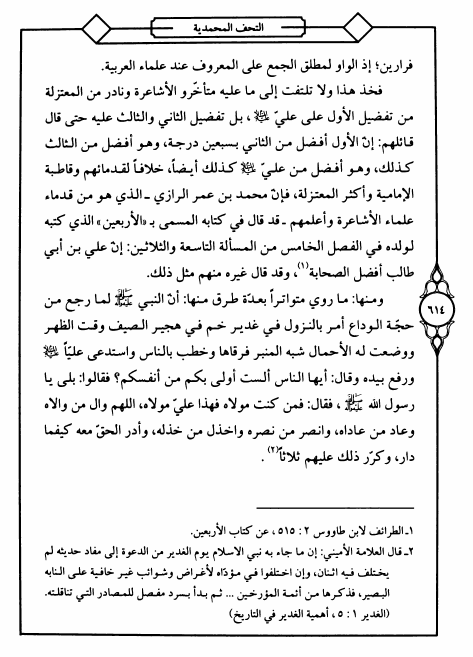 التحف المحمدية
فرارين؛ إذ الواو لمطلق الجمع على المعروف عند علماء العربية.
فخذ هذا ولا تلتفت إلى ما عليه متأخّرو الأشاعرة ونادر من المعتزلة
من تفضيل الأول على عليّ ﷷ، بل تفضيل الثاني والثالث عليه حتى قال
قائلهم: إنّ الأول أفضل من الثاني بسبعين درجة، وهو أفضل من الثالث
كذلك، وهو أفضل من عليّ كذلك أيضاً، خلافاً لقدمائهم وقاطبة
الإمامية وأكثر المعتزلة، فإنّ محمد بن عمر الرازي ـ الذي هو من قدماء
علماء الأشاعرة وأعلمهم ـ قد قال في كتابه المسمى بـ «الأربعين» الذي كتبه
لولده في الفصل الخامس من المسألة التاسعة والثلاثين: إنّ علي بن أبي
طالب أفضل الصحابة(١)، وقد قال غيره منهم مثل ذلك.
ومنها: ما روي متواتراً بعدّة طرق منها: أنّ النبي ﷺ لما رجع من
حجّة الوداع أمر بالنزول في غدير خم في هجير الصيف وقت الظهر
ووضعت له الأحمال شبه المنبر فرقاها وخطب بالناس واستدعى عليّاً
ورفع بيده وقال: أيها الناس ألست أولى بكم من أنفسكم؟ فقالوا: بلى يا
رسول الله ﷺ، فقال: فمن كنت مولاه فهذا عليّ مولاه، اللهم وال من والاه
وعاد من عاداه، وانصر من نصره واخذل من خذله، وأدر الحقّ معه كيفما
دار، وكرّر ذلك عليهم ثلاثاً(٢).
٦١٤
١ـ الطرائف لابن طاووس ٢: ٥١٥، عن كتاب الأربعين.
٢ـ قال العلامة الأميني: إن ما جاء به نبي الاسلام يوم الغدير من الدعوة إلى مفاد حديثه لم
يختلف فيه اثنان، وإن اختلفوا في مؤدّاه لأغراض وشوائب غير خافية على النابه
البصير، فذكرها من أئمة المؤرخين ... ثم بدأ بسرد مفصل للمصادر التي تناقلته.
(الغدير ١: ٥، أهمية الغدير في التاريخ)